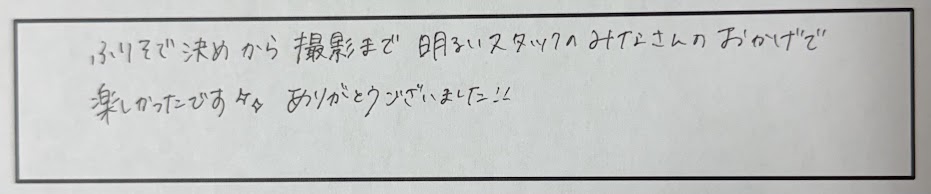 ふりそで決めから撮影まで 明るいスタッフのみなさんのおかげで
楽しかったです✨ ありがとうございました!!